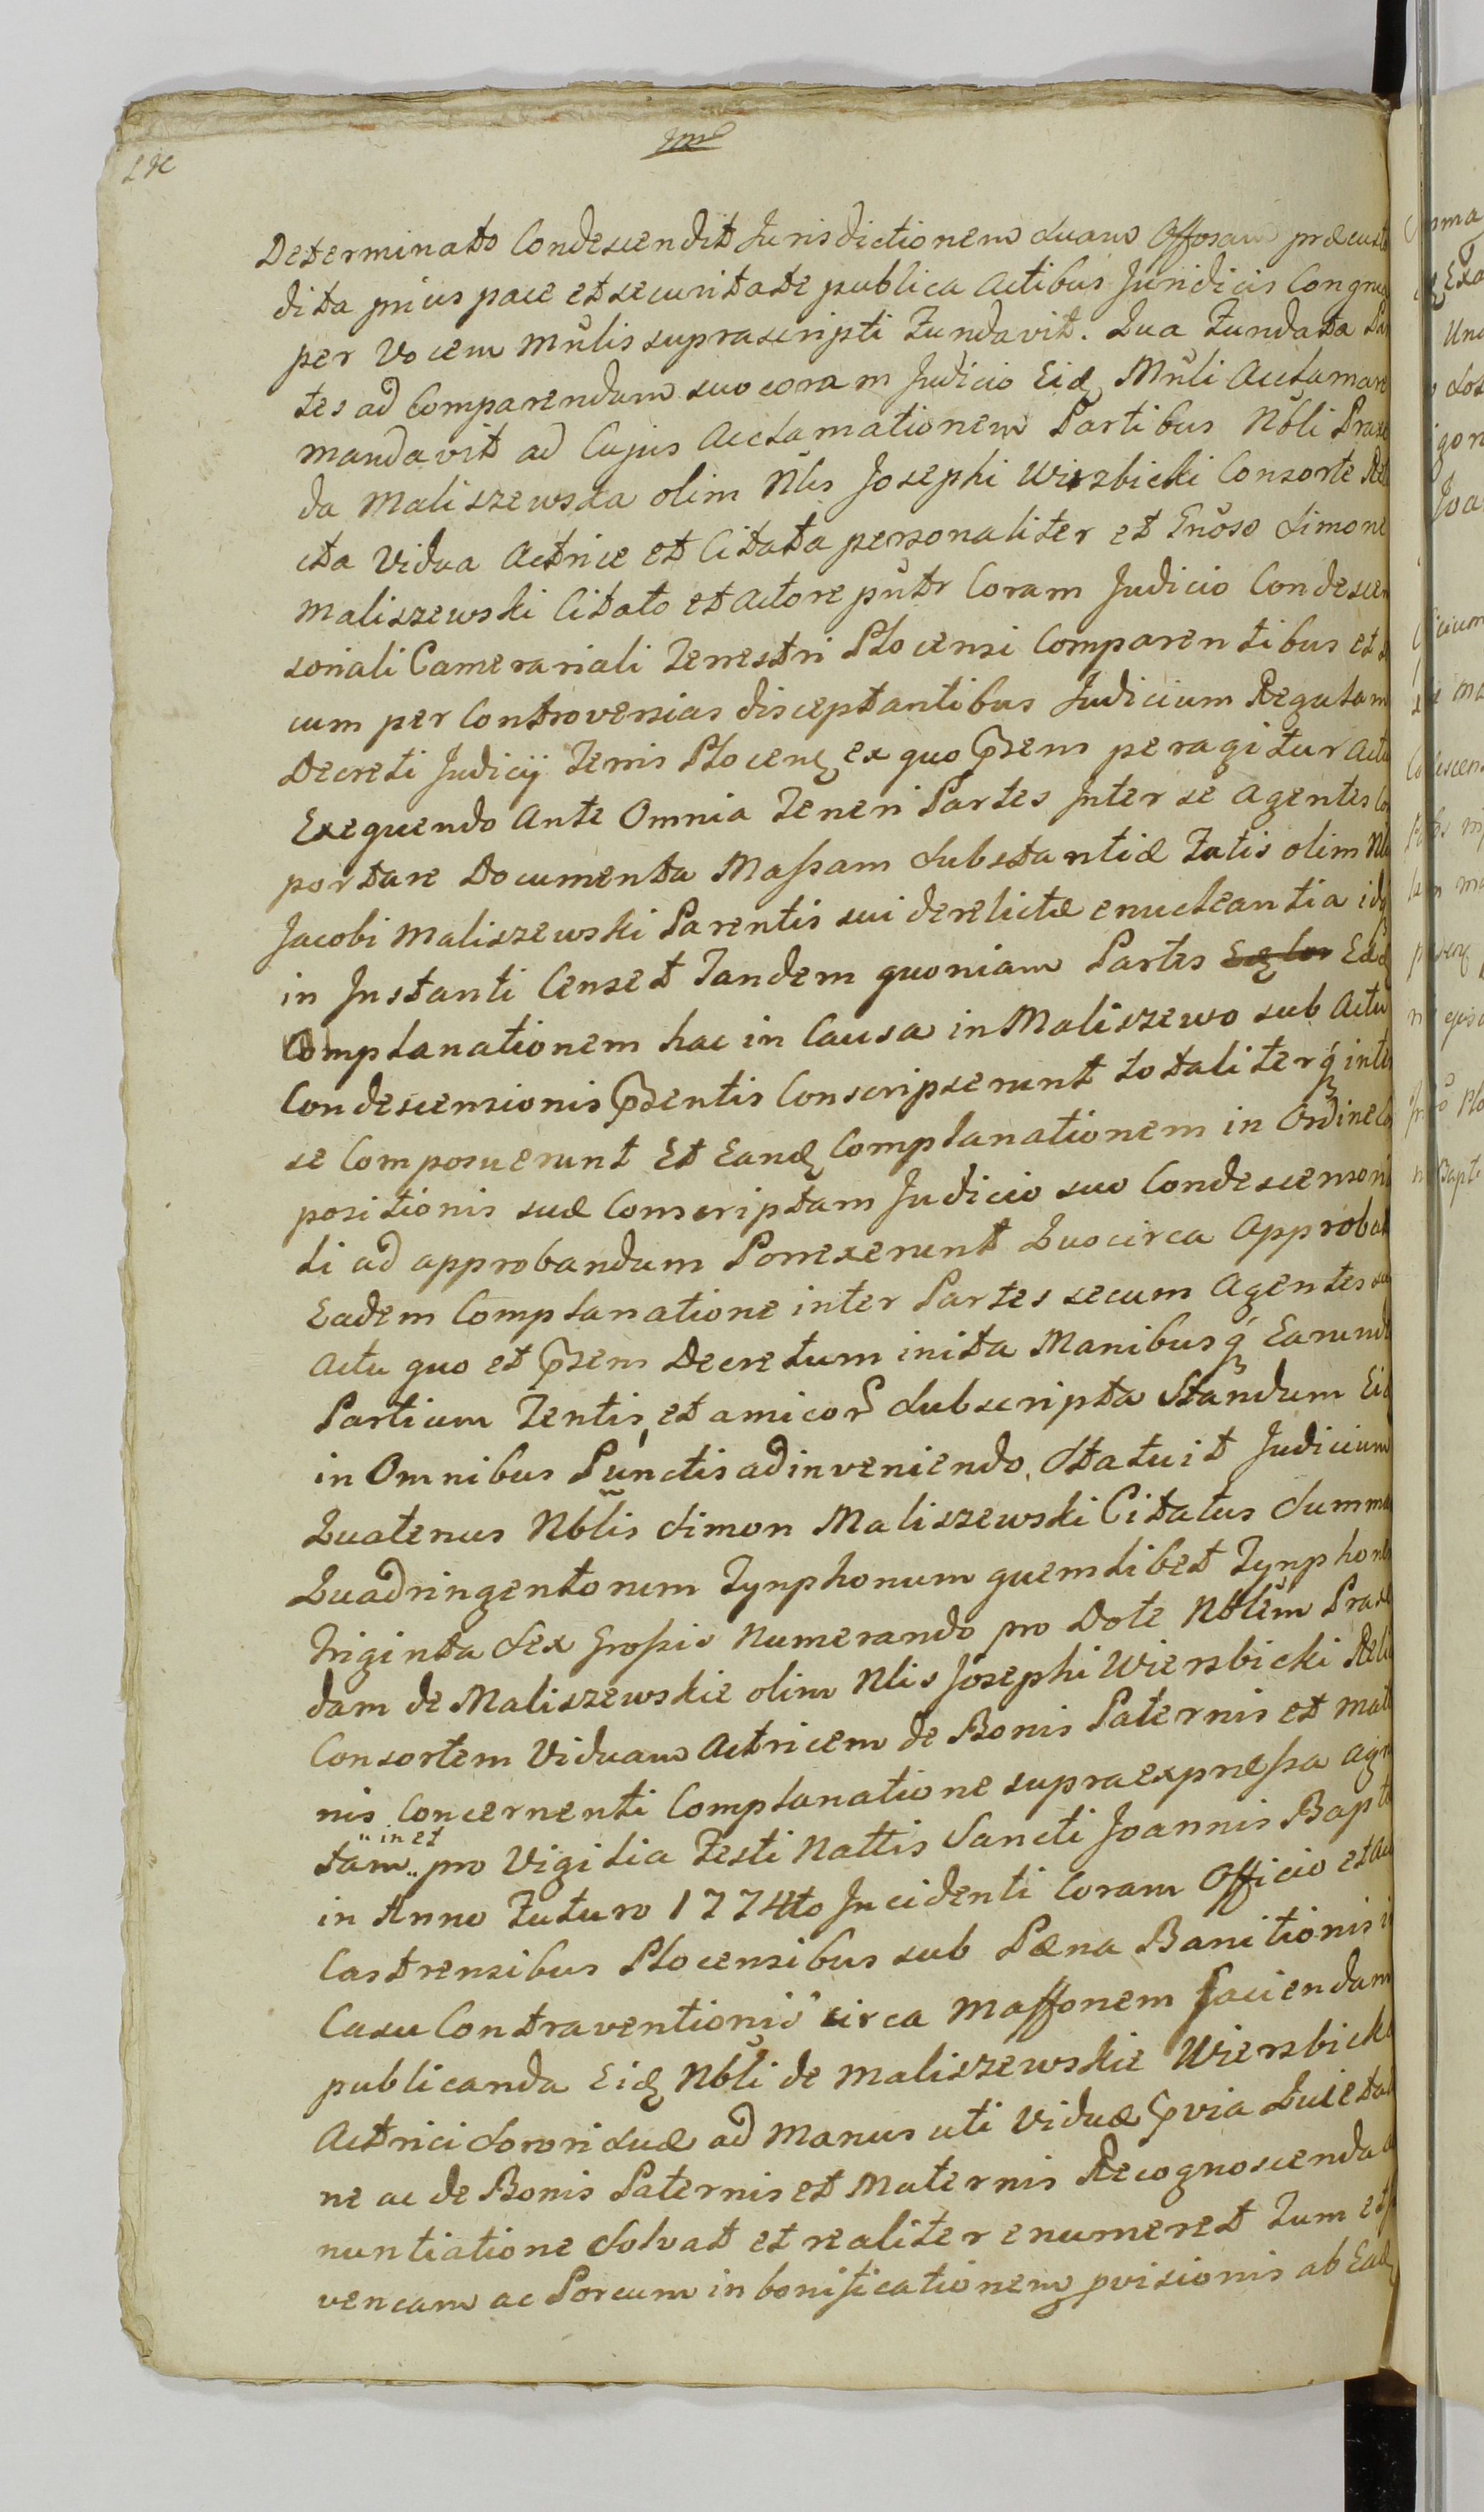 Determinato Condescendit Jurisdictionem suam Offosam præcusto
dita prius pace et securitate publica actibus Juridicis Congrua
per Vocem Mnlis suprascripti Fundavit. Qua Fundata Par
tes ad Comparendum suo coram Judicio Eidę Mnli Acclamare
mandavit ad Cujus Acclamationem Partibus Nbli Praxe
da Maliszewska olim Nlis Josephi Wierzbicki Consorte Reli
cta Vidua Actrice et Citata personaliter et Gnoso Simone
Maliszewski Citato et Actore pntr Coram Judicio Condescen
soriali Camerariali Terrestri Plocensi Comparentibus et se
cum per Controversias disceptantibus Judicium Regulam
Decreti Judicij Terris Plocenę ex quo pñsens peragitur actus
Exequendo Ante Omnia Teneri Partes Inter se Agentes Com
portare Documenta Massam Substantiæ Fatis olim Nlis
Jacobi Maliszewski Parentis sui derelictæ enucleantia idę
in Instanti Censet Tandem quoniam Partes Eædę
Complanationem hac in Causa in Maliszewo sub Actu
Condescensionis pñsentis Conscripserunt totaliterq́ inter
se Composuerunt Et Eandę Complanationem in Ordine Com
positionis suæ Conscriptam Judicio suo Condescensoria
li ad approbandum Porrexerunt Quocirca Approbata
Eadem Complanatione inter Partes secum Agentes sub
Actu quo et pñsens Decretum inita Manibusq́ Earundę
Partium Fentis, et amicor Subscripta Standum Eidę
in Omnibus Punctis adinveniendo. Statuit Judicium
Quatenus Nblis Simon Maliszewski Citatus Summam
Quadringentorum Tynphonum quemlibet Tynphonem
Triginta Sex Grossis Numerando pro Dote Nblem Praxe
dam de Maliszewskie olim Nlis Josephi Wierzbicki Relictam
Consortem Viduam Actricem de Bonis Paternis et Mater
nis Concernenti Complanatione supra expressa Agni
" in et
tam .. pro Vigilia Festi Nattis Sancti Joannis Bapte
in Anno Futuro 1774to Incidenti Coram Officio et Actis
Castrensibus Plocensibus sub Pæna Banitionis in
Casu Contraventionis circa Maffonem faciendam
publicanda Eidę Nbli de Maliszewskie Wierzbicka
Actrici Sorori Suæ ad Manus uti Viduæ pvia Quietatio
ne ac de Bonis Paternis et Maternis Recognoscenda
nuntiatione Solvat et realiter enumeret Tum et Ju
vencam ac Porcum in bonificationem pvisionis ab Eadę